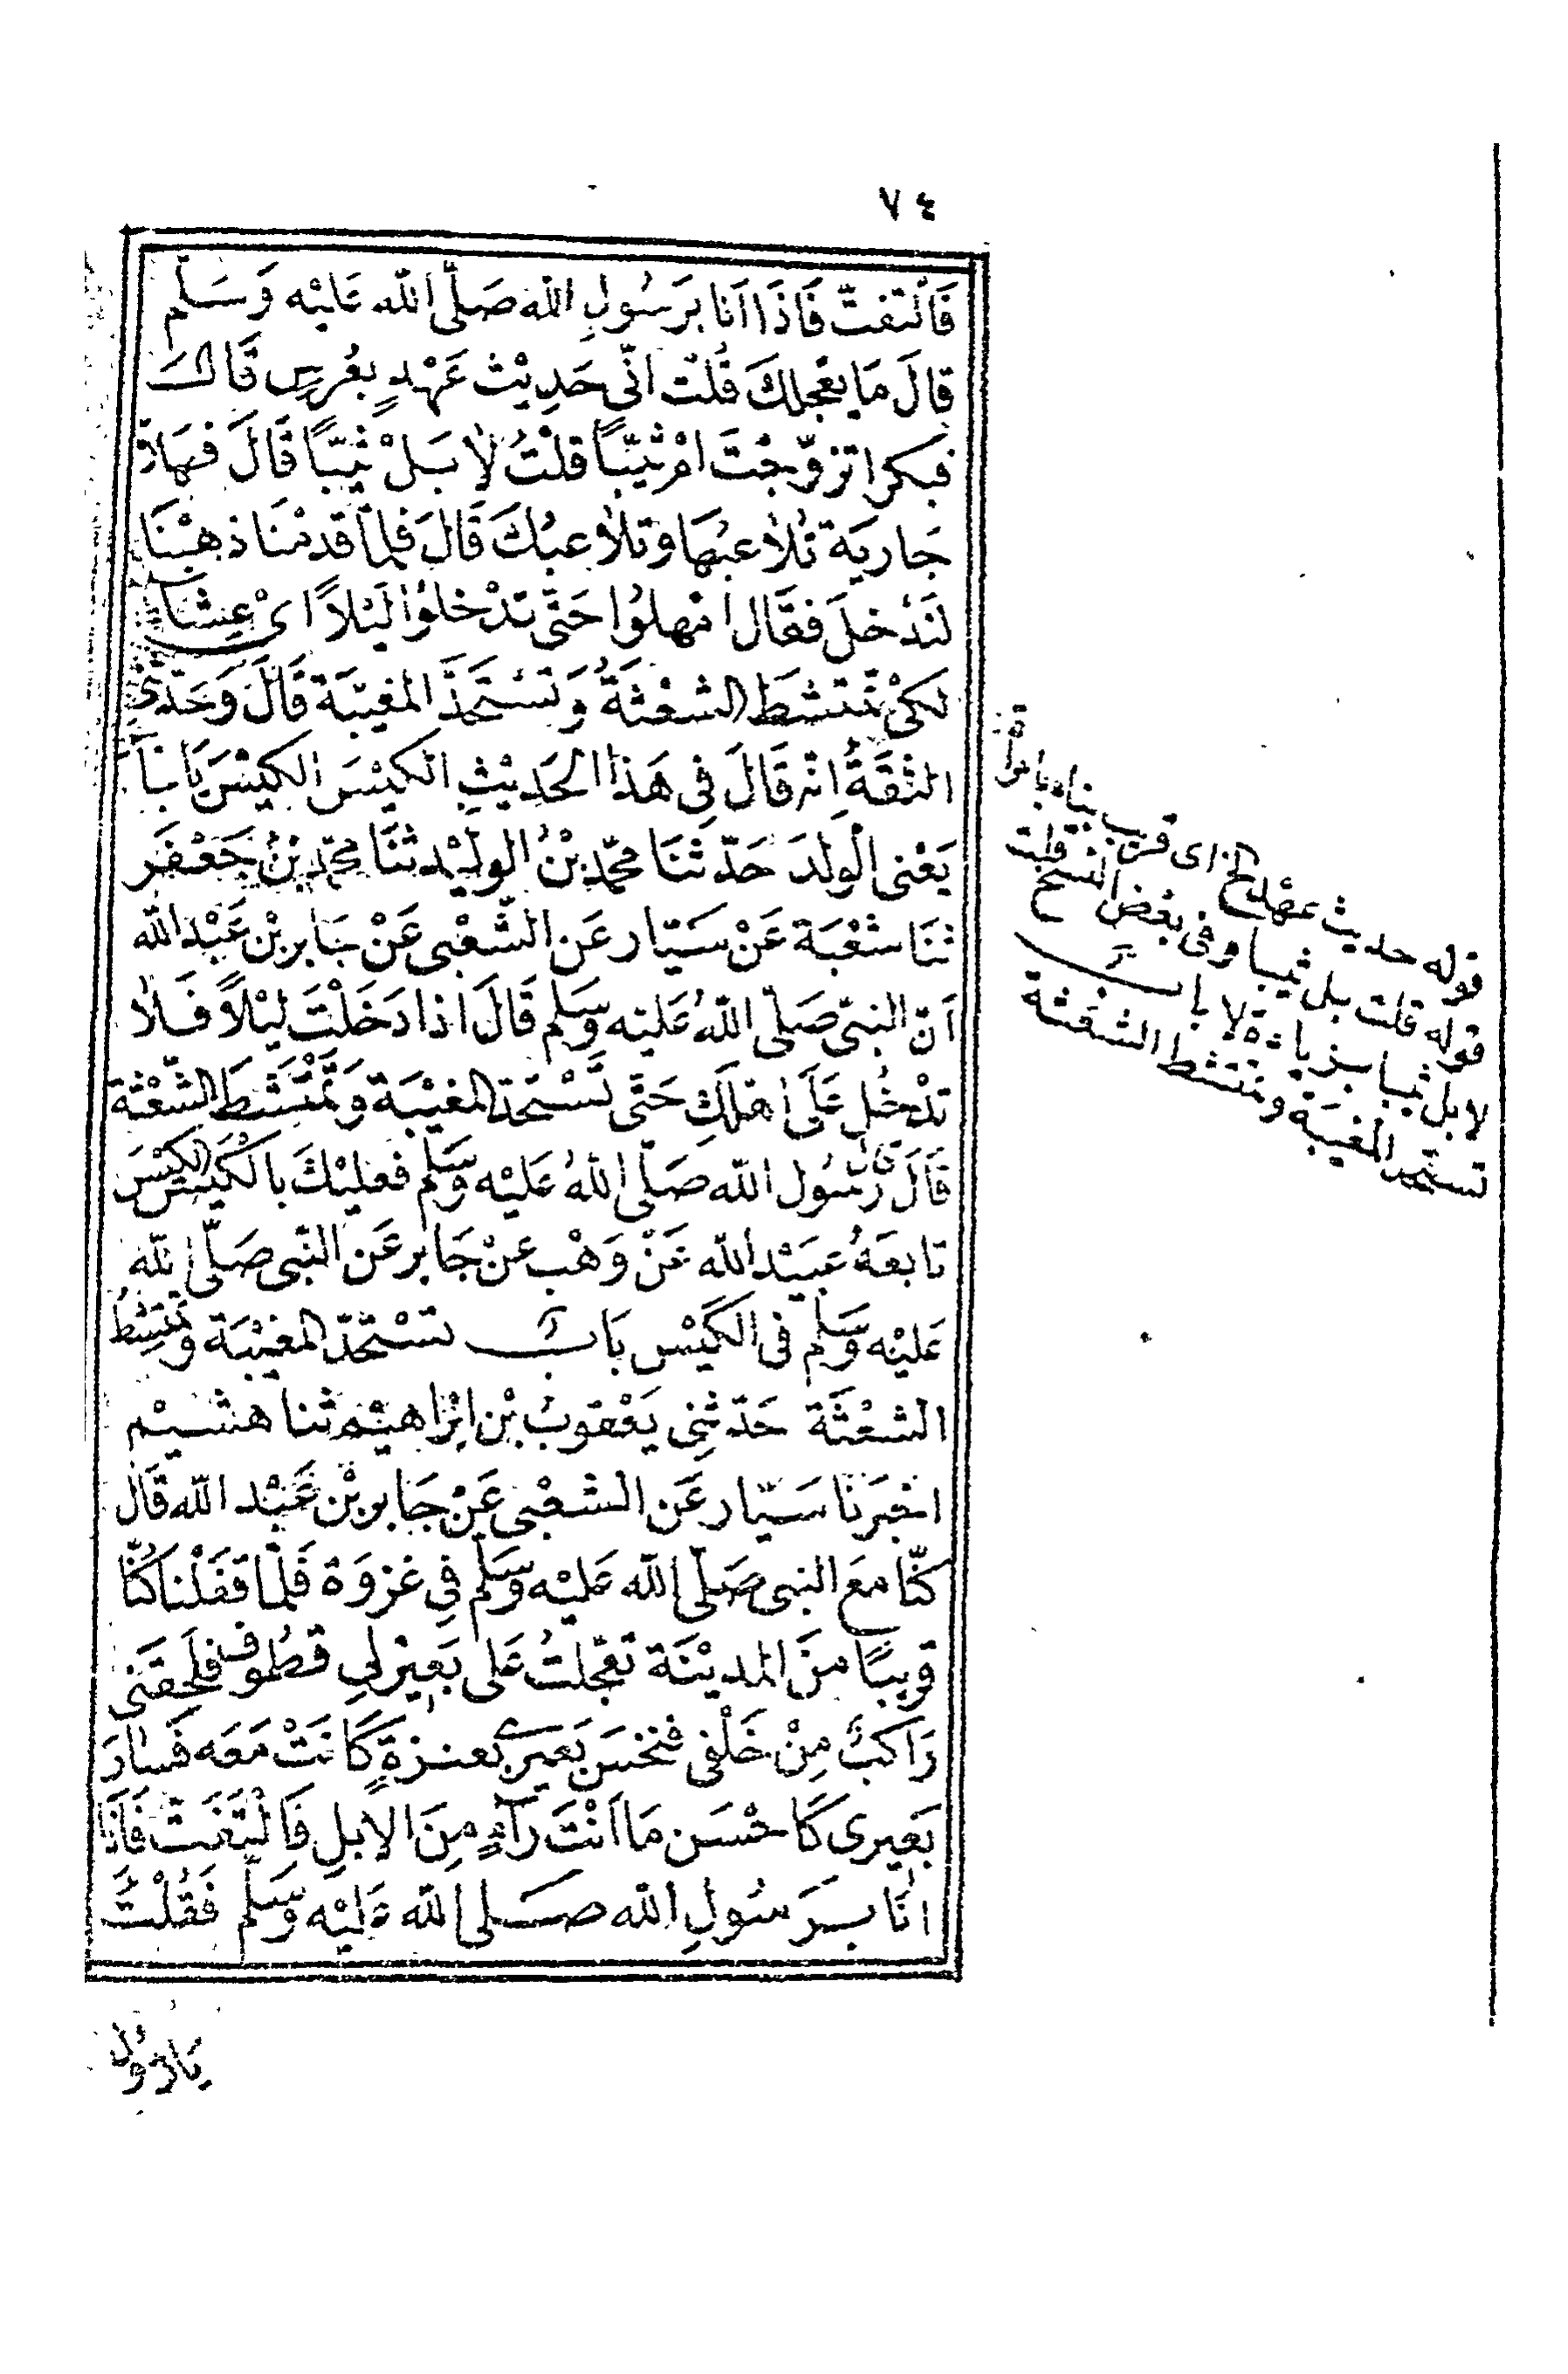 ٧٤
فَالْتَفتّ فَاذَا اَنا بِرَسُولِ اللّه صَلَّى اللّه عَلَيْه وَسَلَّم
قالَ مَا يعْجلكَ قُلتُ انّى حَدِيْث عَهْدٍ بِعُرسٍ قَالَ
فبكرا تزوّجْتَ امْ ثيّبًا قلْتُ لاٰ بَلْ ثيّبًا قَالَ فهَلاّ
جَاريَة تلاٰعبهَا وتلاٰعبُكَ قَالَ فلمّا قدمْنَا ذهبْنَا
لنَدْخلَ فقَال امْهلوُا حَتّى تدْخلوُا ليْلاً اىْ عِشَاءً
لكىْ تمْتشطَ الشعْثةُ وَتَسْتَحدَّ المغيبَة قَالَ وَحَدّثنى
الثقَةُ انّه قَالَ فِى هَذا الحَدِيْثِ الكيْسَ الكيْسَ يَا جَابرُ
يَعْنى الْولدَ حَدّثنَا محمّد بْنُ الوليْد ثنَا محمّد بْنُ جَعْفَر
ثنَا شعْبَة عَنْ سَيّار عَن الشّعْبى عَنْ جَابر بْن عَبْد اللّه
اَنّ النبىّ صَلّى اللّهُ عَليْه وسَلم قَالَ اذا دَخَلْتَ ليْلاً فَلاٰ
تدْخُل عَلَى اهْلكِ حَتّى تَسْتَحدّ المغيْبَة وَتَمْتَشطَ الشّعْثة
قَالَ قال رَسُول اللّه صَلّى اللّهُ عَليْه وسَلم فعليْكَ بالْكَيْسِ الكيْسَ
تابعَهُ عبَيْد اللّه عَنْ وَهْب عنْ جَابر عَن النّبى صَلّى اللّه
عَليْه وسَلم فى الكَيْس بَابُ تسْتَحدّ المغيْبَة وتمتشط
الشعْثَة حَدّثنِى يَعْقوبُ بْن ابْرَاهيْم ثنا هشيْم
اخبَرَنا سَيّار عَن الشعْبى عَنْ جَابر بْن عَبْد اللّه قَال
كنّا معَ النبى صَلّى اللّه عَليْه وسَلم فِى غزوَة فَلمّا قفَلْنا كُنّا
قريبًا منَ المديْنَة تعَجّلتُ عَلى بَعِيْر لِى قطُوف فلَحِقَنى
رَاكبٌ مِنْ خَلْفى فنخسَ بَعيرى بعنزةٍ كَانَتْ مَعَه فَسَارَ
بَعِيرى كَاحْسَن مَا اَنْتَ رَآءٍ مِنَ الابلِ فَالْتَفَتّ فَاذَا
انَا بِرَسُولِ اللّه صَلى اللّه عَليْه وسَلم فَقُلْتُ
يَارَسُول
قوله حديث عهْد الخ اى قريب بناء بامرأة
قوله قلت بل ثيبا وفى بعْض النسخ قلت
لا بل ثيبا بزيادة لا بابُ
تستحد المغيبة وتمتشط الشعْثة